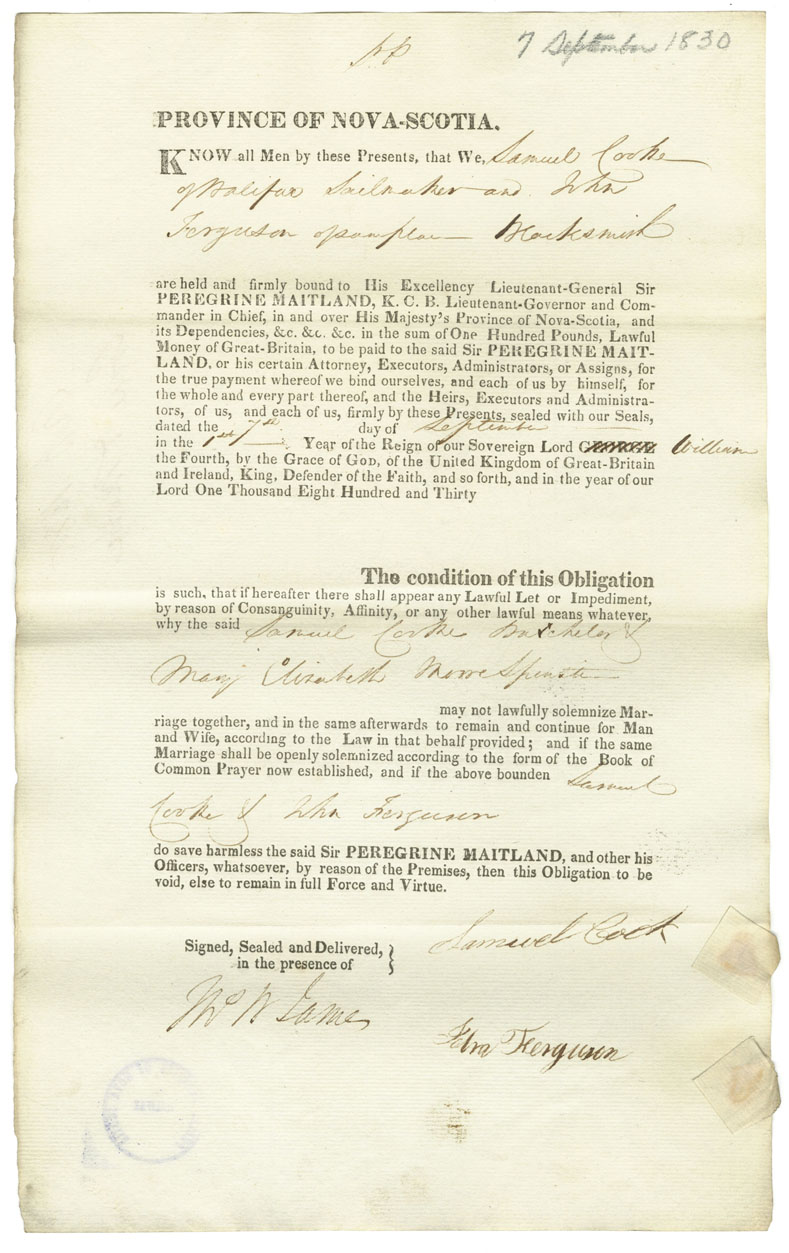 7 September 1830
PROVINCE OF NOVA-SCOTIA.
KNOW all Men by these Presents, that We, Samuel Cooke
of Halifax Sailmaker and John
Ferguson of same place Blacksmith
are held and firmly bound to His Excellency Lieutenant-General Sir
PEREGRINE MAITLAND, K. C. B. Lieutenant-Governor and Com-
mander in Chief, in and over His Majesty's Province of Nova-Scotia, and
its Dependencies, &c. &c. &c. in the sum of One Hundred Pounds, Lawful
Money of Great-Britain, to be paid to the said Sir PEREGRINE MAIT-
LAND, or his certain Attorney, Executors, Administrators, or Assigns, for
the true payment whereof we bind ourselves, and each of us by himself, for
the whole and every part thereof, and the Heirs, Executors and Administra-
tors, of us, and each of us, firmly by these Presents, sealed with our Seals,
dated the 7 day of September
in the 1st Year of the Reign of our Sovereign Lord William
the Fourth, by the Grace of GOD, of the United Kingdom of Great-Britain
and Ireland, King, Defender of the Faith, and so forth, and in the year of our
Lord One Thousand Eight Hundred and Thirty
The condition of this Obligation
is such, that if hereafter there shall appear any Lawful Let or Impediment,
by reason of Consanguinity, Affinity, or any other lawful means whatever,
why the said Samuel Cooke Batchelor &
Mary Elizabeth Spinster
may not lawfully solemnize Mar-
riage together, and in the same afterwards to remain and continue for Man
and Wife, according to the Law in that behalf provided; and if the same
Marriage shall be openly solemnized according to the form of the Book of
Common Prayer now established, and if the above bounden Samuel
Cooke & John Ferguson
do save harmless the said Sir PEREGRINE MAITLAND, and other his
Officers, whatsoever, by reason of the Premises, then this Obligation to be
void, else to remain in full Force and Virtue.
Signed, Sealed and Delivered,
in the presence of
Samuel Cook
Thos W James
John Ferguson